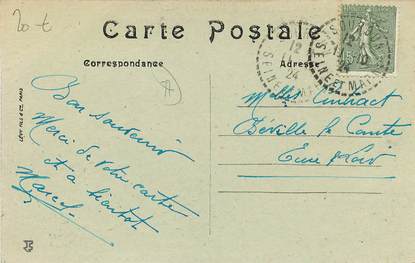 20 €
Carte Postale
Correspondance
Adresse
LÉVY FILS & Cie, PARIS
Bon souvenir
Merci de votre carte
et à bientôt
Marcel
12
24
SEINE ET MARNE
Melles
Béville le Comte
Eure & Loir